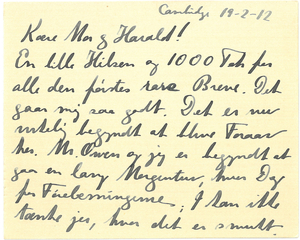 Cambridge 19-2-12
Kære Mor og Harald!
En lille Hilsen og 1000 Tak for
alle den førstes rare Breve. Det
gaar mig saa godt. Det er nu
virkelig begyndt at blive Foraar
her. Mr Owen og jeg er begyndt at
gaa en lang Morgentur, hver Dag
før Forelæsningerne; I kan ikke
tænke jer, hvor det er smukt